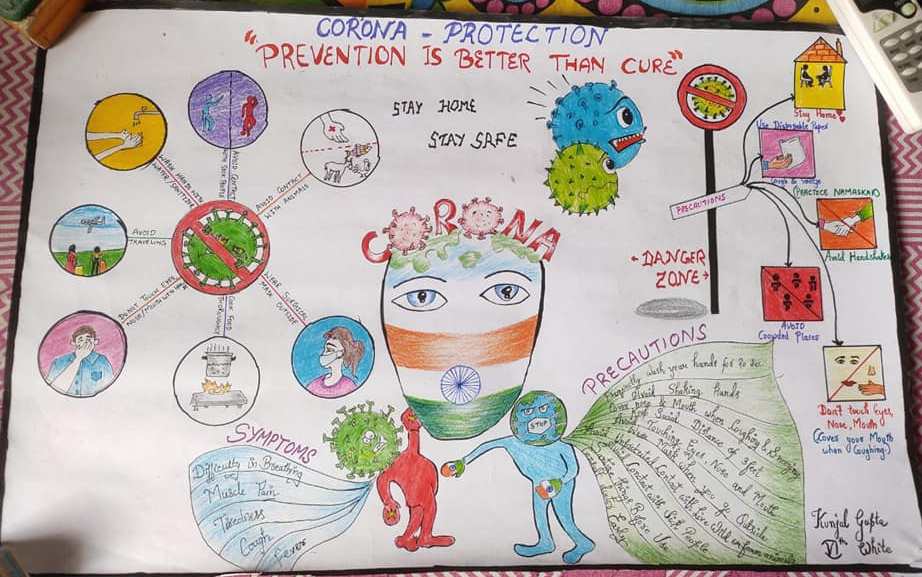 CORONA - PROTECTION
"PREVENTION IS BETTER THAN CURE"
STAY HOME
STAY SAFE
WASH HANDS WITH
WATER/SOAP
AVOID CONTACT
WITH SICK PEOPLE
AVOID CONTACT
WITH ANIMALS
AVOID
TRAVELING
DON'T TOUCH EYES
NOSE/MOUTH WITH
COOK FOOD
THOROUGHLY
SURGICAL
MASK OUTSIDE
CORONA
DANGER
ZONE
PRECAUTIONS
Stay Home
Use Disposable Paper
Cough &
(PRACTICE NAMASKAR)
Avoid Handshakes
AVOID
Crowded Places
Don't touch Eyes,
Nose, Mouth
(Cover your Mouth
when Coughing.)
SYMPTOMS
Difficulty in Breathing
Muscle Pain
Tiredness
Cough
Fever
STOP
PRECAUTIONS
wash your hands for 20 sec.
Avoid Shaking Hands
nose & Mouth when Coughing & Sneezing
Social Distance of
Touching Eyes, Nose and Mouth
Mask when you go Outside
Contact with Live
Contact with Sick People
Before Use
Early
Kunjal Gupta
VIth White